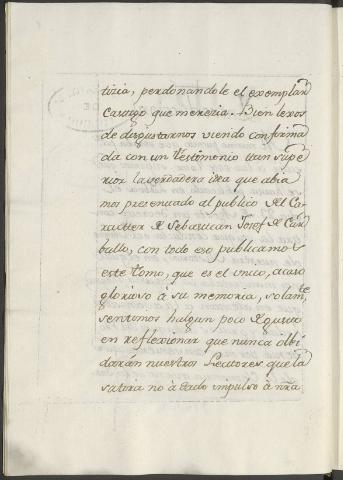 tizia, perdonandole el exemplar
Castigo que merezia. Bien lexos
de disgustarnos viendo confirma
da con un testimonio tan supe
rior la verdadera idea que abia
mos presentado al publico del Ca
racter de Sebastian Josef de Car
ballo, con todo eso publicamos
este tomo, que es el unico, acaso
glorioso à su memoria, solamte
sentimos halgun poco de gusto
en reflexionar que nunca olbi
darán nuestros Lectores que la
satira no à dado impulso à nra